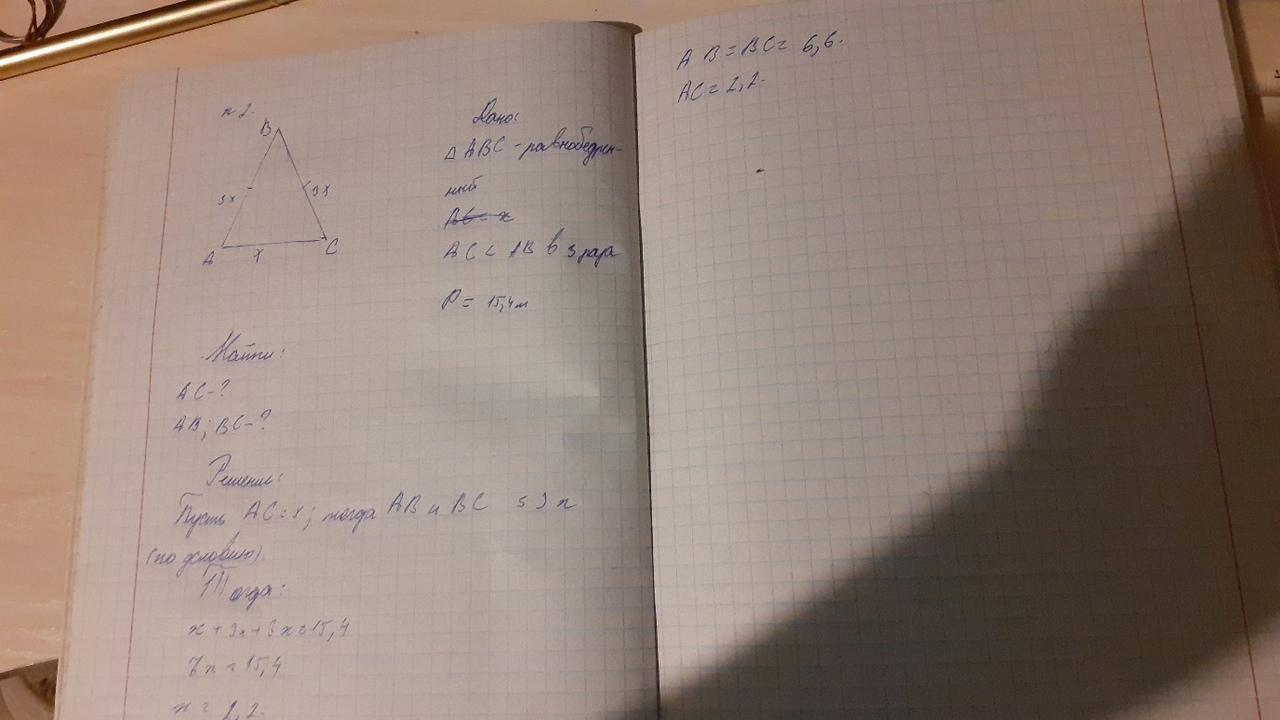 № 2.
B
3x
3x
A
x
C
Дано:
△ ABC - равнобедрен-
ный
AC = x
AC < AB в 3 раза
P = 15,4м
Найти:
AC - ?
AB; BC - ?
Решение:
Пусть AC = x; тогда AB и BC = 3x
(по условию).
Тогда:
x + 3x + 3x = 15,4
7x = 15,4
x = 2,2.
AB = BC = 6,6.
AC = 2,2.